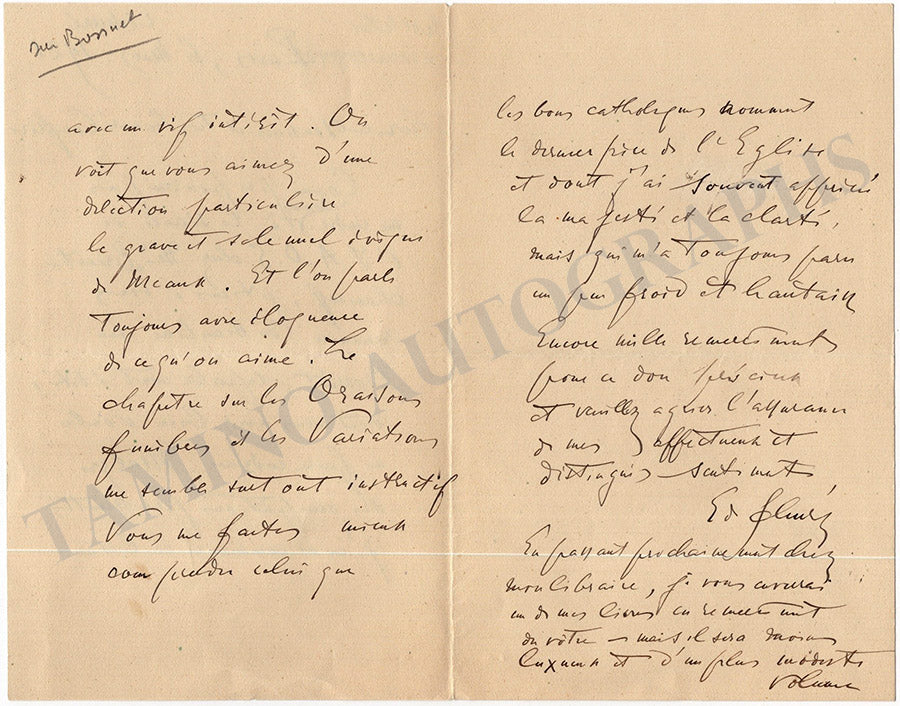 sur Bossuet
avec un vif intérêt. On
voit que vous aimez d'une
délection particulière
le grave et solennel évêque
de Meaux. Et l'on parle
Toujours avec éloquence
de ce qu'on aime. Le
chapitre sur les Oraisons
funèbres et les Variations
me semble surtout instructif
Vous me faites mieux
comprendre celui que
les bons catholiques nomment
le dernier père de l'Eglise
et dont j'ai souvent apprécié
la majesté et la clarté,
mais qui m'a Toujours paru
un peu froid et hautain
Encore mille remerciements
pour ce don précieux
et veuillez agréer l'assurance
de mes affectueux et
distingués sentiments
Ed
En passant prochainement chez
mon libraire, je vous enverrai
un de mes livres en remerciement
du vôtre – mais il sera moins
luxueux et d'un plus modeste
volume
TAMINO AUTOGRAPHS